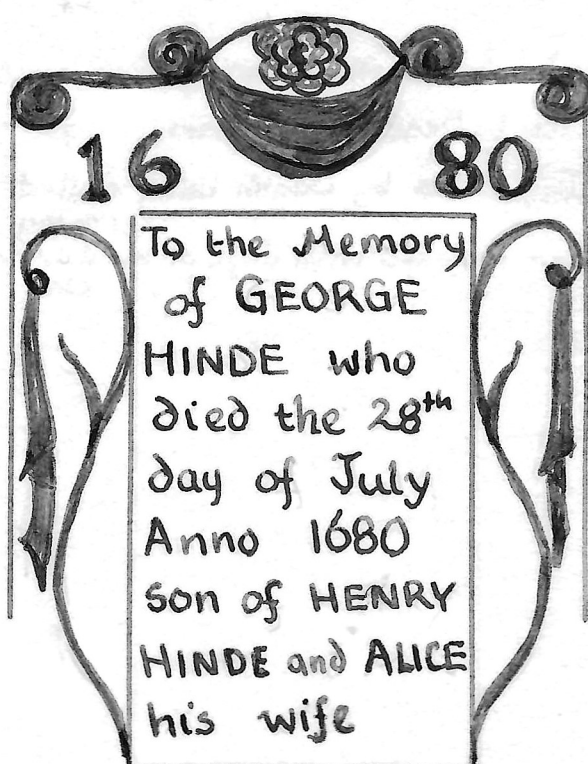 16 80
To the Memory
of GEORGE
HINDE who
died the 28th
day of July
Anno 1680
son of HENRY
HINDE and ALICE
his wife